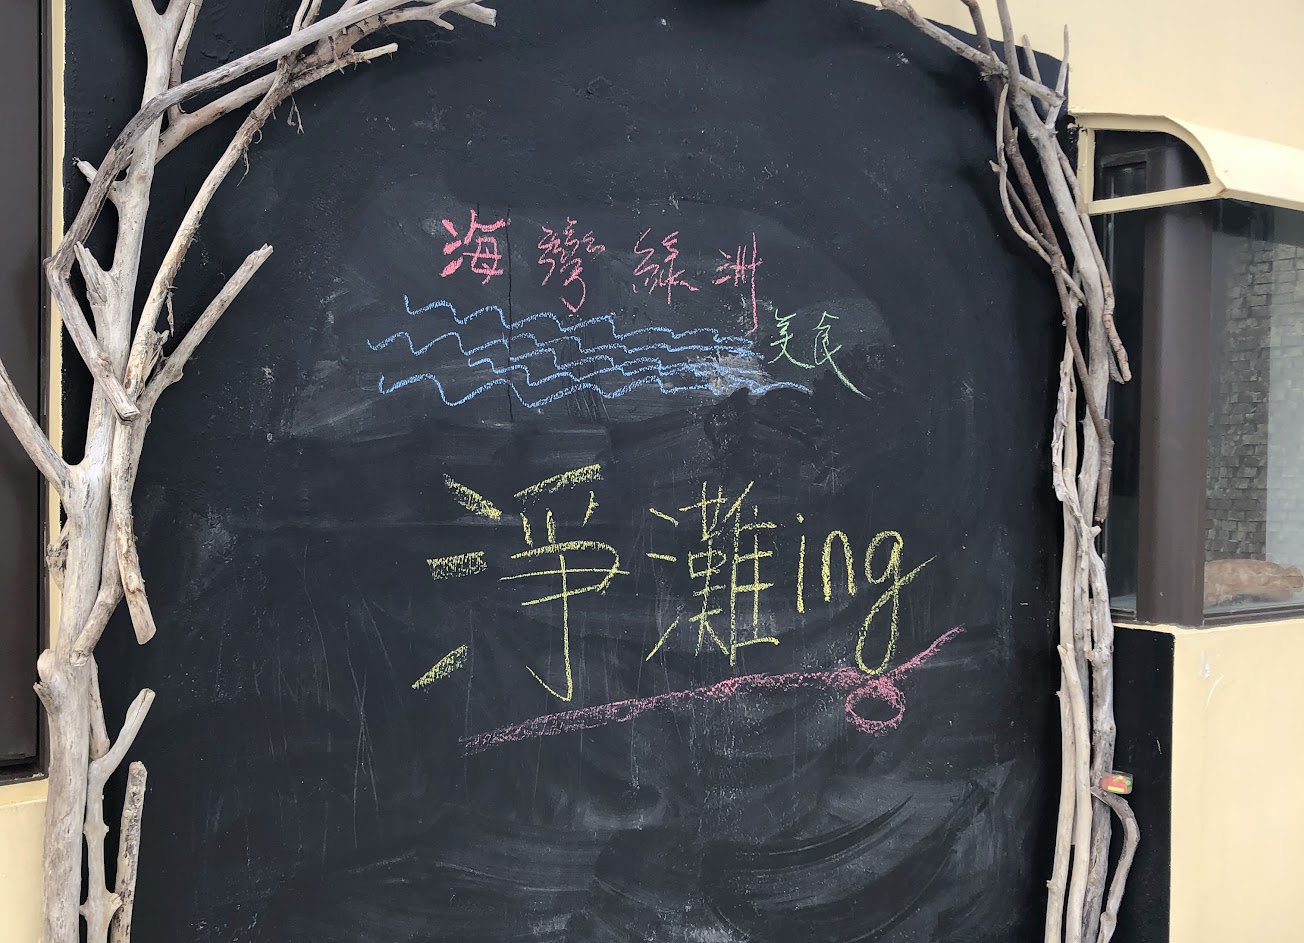 海灣綠洲
美食
淨灘ing